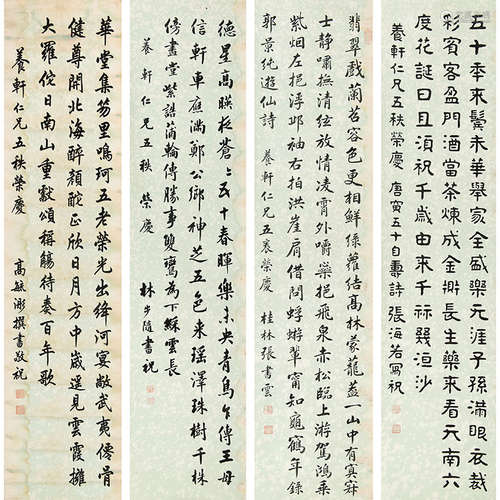 五十來鬢未華家全盛樂子孫滿眼衣裁
彩賓客盈門酒當茶煉成金鼎長生藥來看天南六
度花誕日且須祝千歲由來千祘幾洹沙
養軒仁兄五秩榮慶 唐寅五十自壽詩 張海若寫祝
翡翠戲蘭苕容色更相鮮綠蘿結高林蒙蘢蓋一山中有冥寂
士靜嘯撫清弦放情凌霄外嚼蕊挹飛泉赤松臨上游駕鴻乘
紫烟左挹浮邱袖右拍洪崖肩借問蜉蝣輩甯知龜鶴年錄
郭景純遊仙詩 養軒仁兄五袠榮慶 桂林張書雲
德星高暎極蒼蒼五十春暉樂未央青鳥乍傳王母
信軒車應滿鄭公鄉神芝五色来瑶澤珠樹千株
傍畫堂紫誥蒲輪傳勝事雙鸞為下綵雲長
養軒仁兄五秩榮慶 林步隨書祝
華堂集笏里鳴珂五老榮光出絳河宴敞武夷僊骨
健尊開北海醉顏酡正欣日月方中歲遥見雲霞擁
大羅佗日南山重獻頌稱觴待奏百年歌
養軒仁兄五秩榮慶 高毓浵撰書敬祝